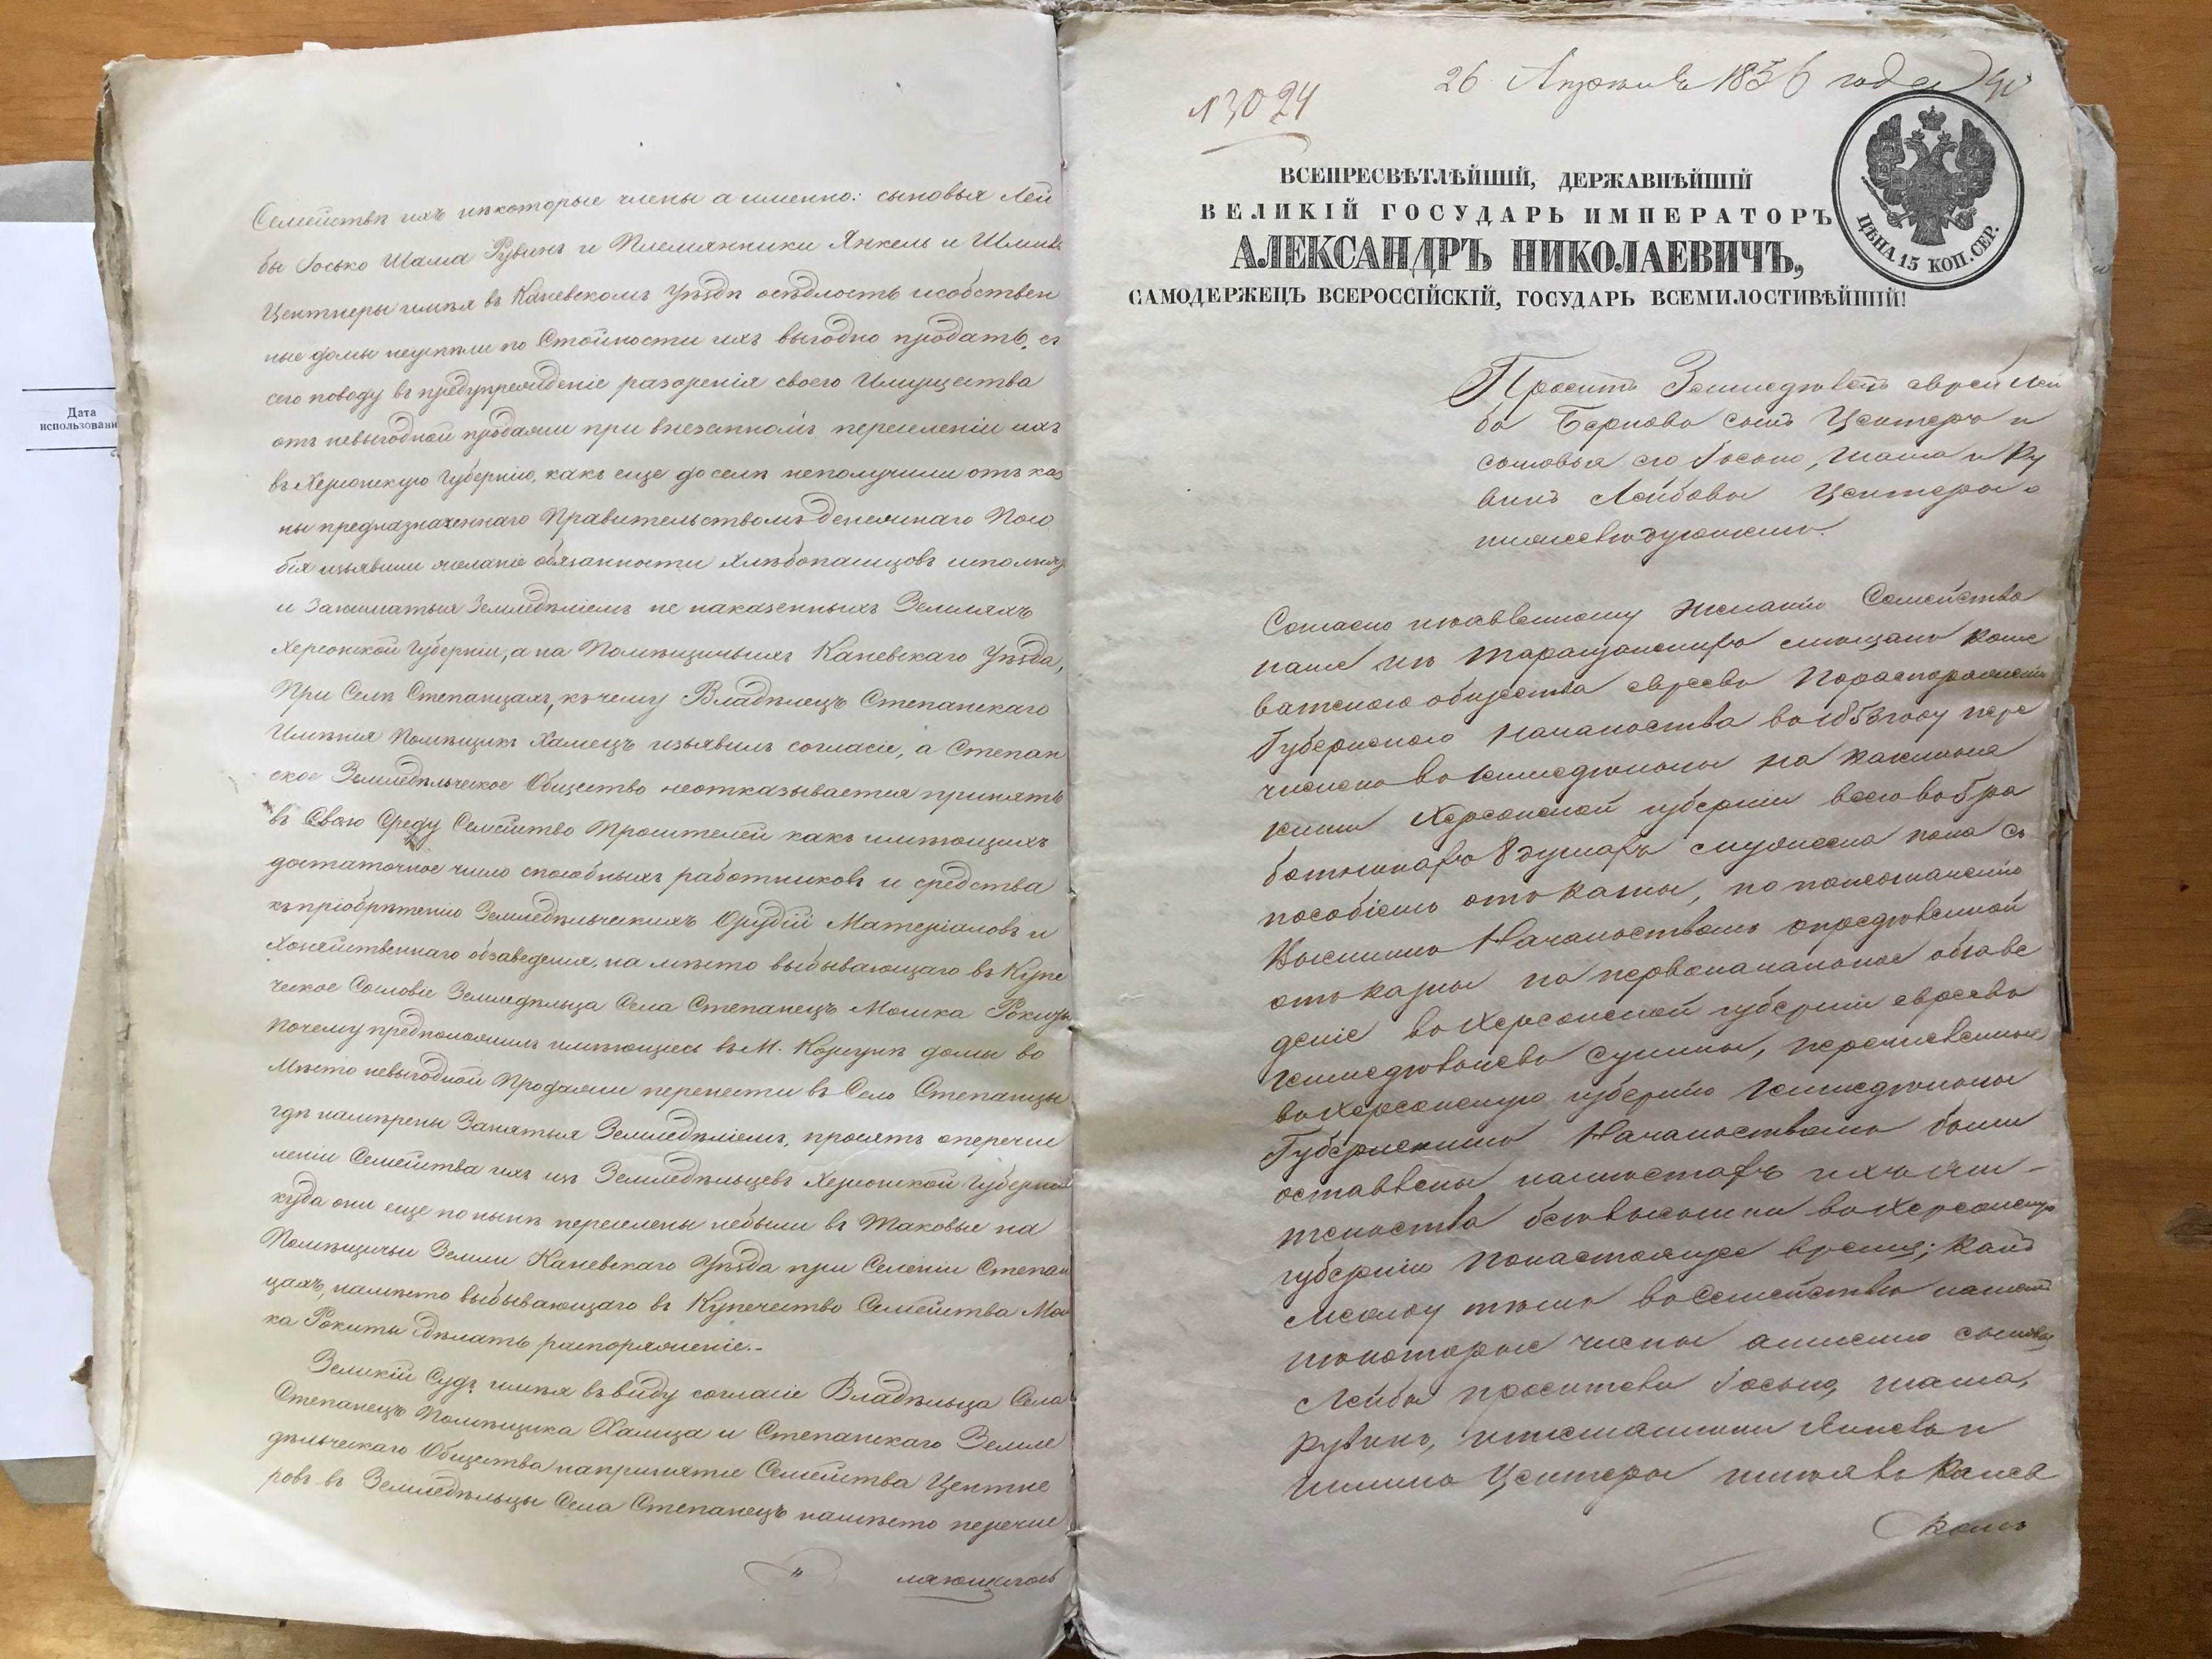 Дата
использовани
Семействѣ ихъ нѣкоторые члены а именно: сыновья Лей
бы Іосько Шама Рувинъ и Племянники Янкель и Шлима
Центнеры имѣя въ Каневскомъ Уѣздѣ осѣдлость исобствен
ные домы неуспѣли по Стоимости ихъ выгодно продать, съ
сего поводу въ предупрежденіе разоренія своего Имущества
отъ невыгодной продажи при внезапномъ переселеніи ихъ
въ Херсонскую Губернію, какъ еще доселѣ неполучили отъ каз
ны предназначеннаго Правительствомъ денежнаго Посо
бія изъявили желаніе обязанности Хлѣбопашцовъ исполнять
и Заниматься Земледѣліемъ не наказенныхъ Земляхъ
Херсонской Губерніи, а на Помѣщичьихъ Каневскаго Уѣзда,
При Селѣ Степанцахъ, къ чему Владѣлецъ Степанскаго
Имѣнія Помѣщикъ Хамецъ изъявилъ согласіе, а Степан
ское Земледѣльческое Общество неотказывается принять
въ Свою Среду Семейство Просителей какъ имѣющихъ
достаточное число способныхъ работниковъ и средства
къ пріобрѣтенію Земледѣльческихъ Орудій Матеріаловъ и
Хозяйственнаго обзаведенія, на мѣсто выбывающаго въ Купе
ческое Сословіе Земледѣльца Села Степанецъ Мошка Рокиты
Почему предположилъ имѣющіеся въ М. Корсунѣ домы во
Мѣсто невыгодной Продажи перенести въ Село Степанцы
гдѣ намѣрены Заняться Земледѣліемъ, просятъ оперечис
леніи Семейства ихъ изъ Земледѣльцевъ Херсонской Губерніи
куда они еще по нынѣ переселены небыли въ Таковые на
Помѣщичьи Земли Каневскаго Уѣзда при Селеніи Степан
цахъ, намѣсто выбывающаго въ Купечество Семейства Мош
ка Рокиты сдѣлать распоряженіе.
Земскій Судъ имѣя въ виду согласіе Владѣльца Села
Степанецъ Помѣщика Хамца и Степанскаго Земле
дѣльческаго Общества напринятіе Семейства Центне
ровъ въ Земледѣльцы Села Степанецъ намѣсто перечис
ляющагось
№ 3024
26 Апрѣля 1856 года
ВСЕПРЕСВѢТЛѢЙШІЙ, ДЕРЖАВНѢЙШІЙ
ВЕЛИКІЙ ГОСУДАРЬ ИМПЕРАТОРЪ
АЛЕКСАНДРЪ НИКОЛАЕВИЧЪ,
САМОДЕРЖЕЦЪ ВСЕРОССІЙСКІЙ, ГОСУДАРЬ ВСЕМИЛОСТИВѢЙШІЙ!
ЦѢНА 15 КОП. СЕР.
Просятъ Земледѣлецъ еврей Лей
ба Берковъ сынъ Центеръ и
сыновья его Іосько, Шама и Ру
винъ Лейбовы Центеры о
нижеслѣдующемъ.
Согласно изъявленному желанію Семейство
наше изъ Таращанскихъ мѣщанъ
ватскаго общества евреевъ Пораспоряженію
Губернскаго Начальства въ 1853 году пере
числено въ земледѣльцы на казенныя
земли Херсонской губерніи
8 душахъ
пособіемъ отъ казны, но
Высшимъ Начальствомъ опредѣленной
отъ казны на первоначальное обзаве
деніе въ Херсонской губерніи евреевъ
земледѣльцевъ Суммы, перечисленные
въ Херсонскую губернію земледѣльцы
Губернскимъ Начальствомъ были
оставлены намѣстахъ ихъ жи-
тельства безъ высылки въ Херсонскую
губернію Понастоящее время;
между тѣмъ въ Семействѣ нашемъ
нѣкоторые члены аименно сыновья
Лейбы просители Іосько, Шама,
Рувинъ, иплемянники Янкель и
Шлима Центеры имѣя въ Канев
скомъ